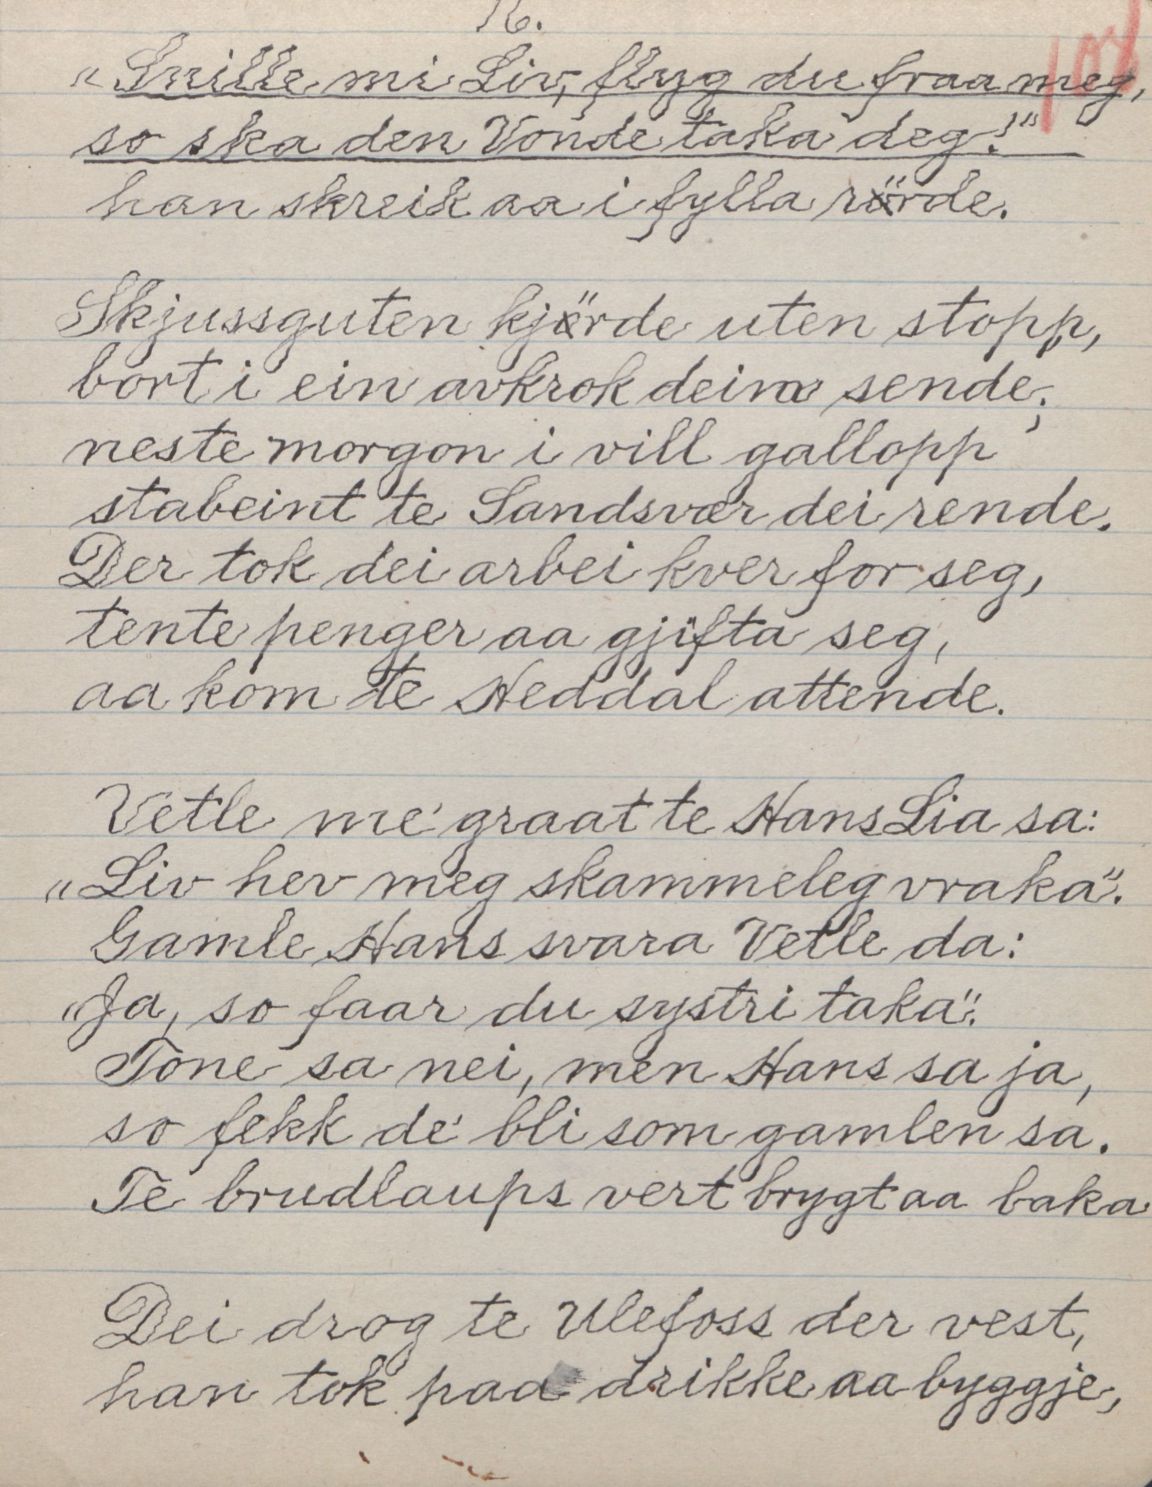 16.
„Snille mi Liv, flyg du fraa meg,
so ska den Vonde taka deg!"
han skreik aa i fylla rörde.
Skjussguten kjörde uten stopp,
bort i ein avkrok dein sende;
neste morgon i vill gallopp
stabeint te Sandsvær dei rende.
Der tok dei arbei kver for seg,
tente penger aa gjifta seg,
aa kom te Heddal attende.
Vetle me' graat te Hans Lia sa:
„Liv hev meg skammeleg vraka".
Gamle Hans svara Vetle da:
„Ja, so faar du systri taka".
Tone sa nei, men Hans sa ja,
so fekk de' bli som gamlen sa.
Te brudlaups vert brygt aa baka
Dei drog te Ulefoss der vest,
han tok paa drikke aa byggje,